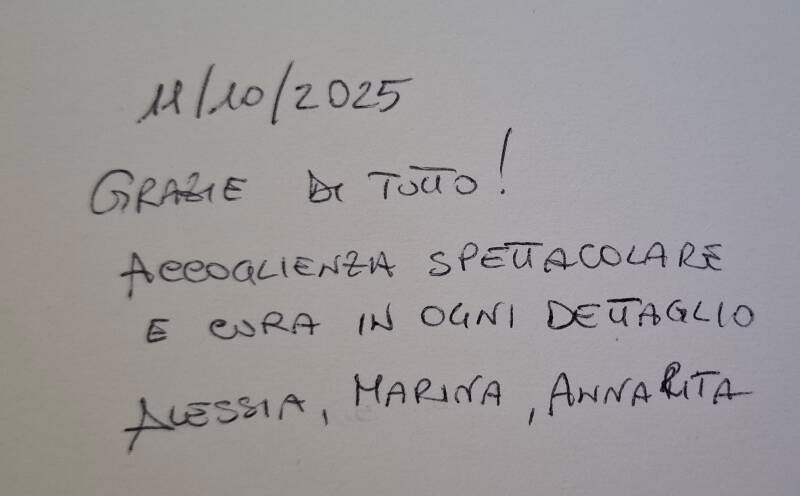 11/10/2025
GRAZIE DI TUTTO!
ACCOGLIENZA SPETTACOLARE
E CURA IN OGNI DETTAGLIO
ALESSIA, MARINA, ANNARITA